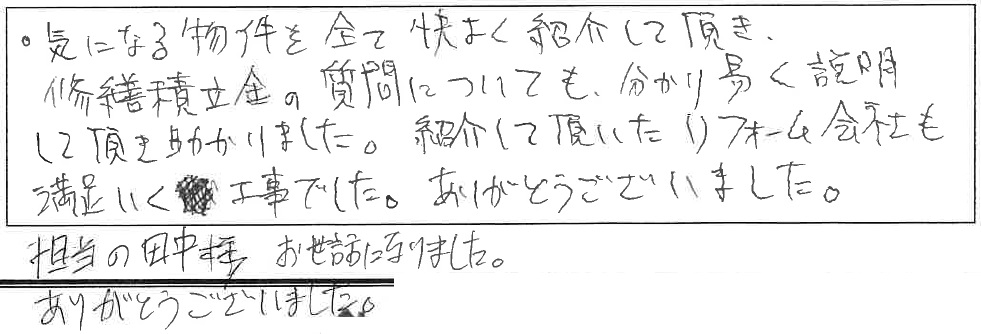 ・気になる物件を全て快よく紹介して頂き、
修繕積立金の質問についても、分かり易く説明
して頂き助かりました。紹介して頂いたリフォーム会社も
満足いく工事でした。ありがとうございました。
担当の田中様 お世話になりました。
ありがとうございました。